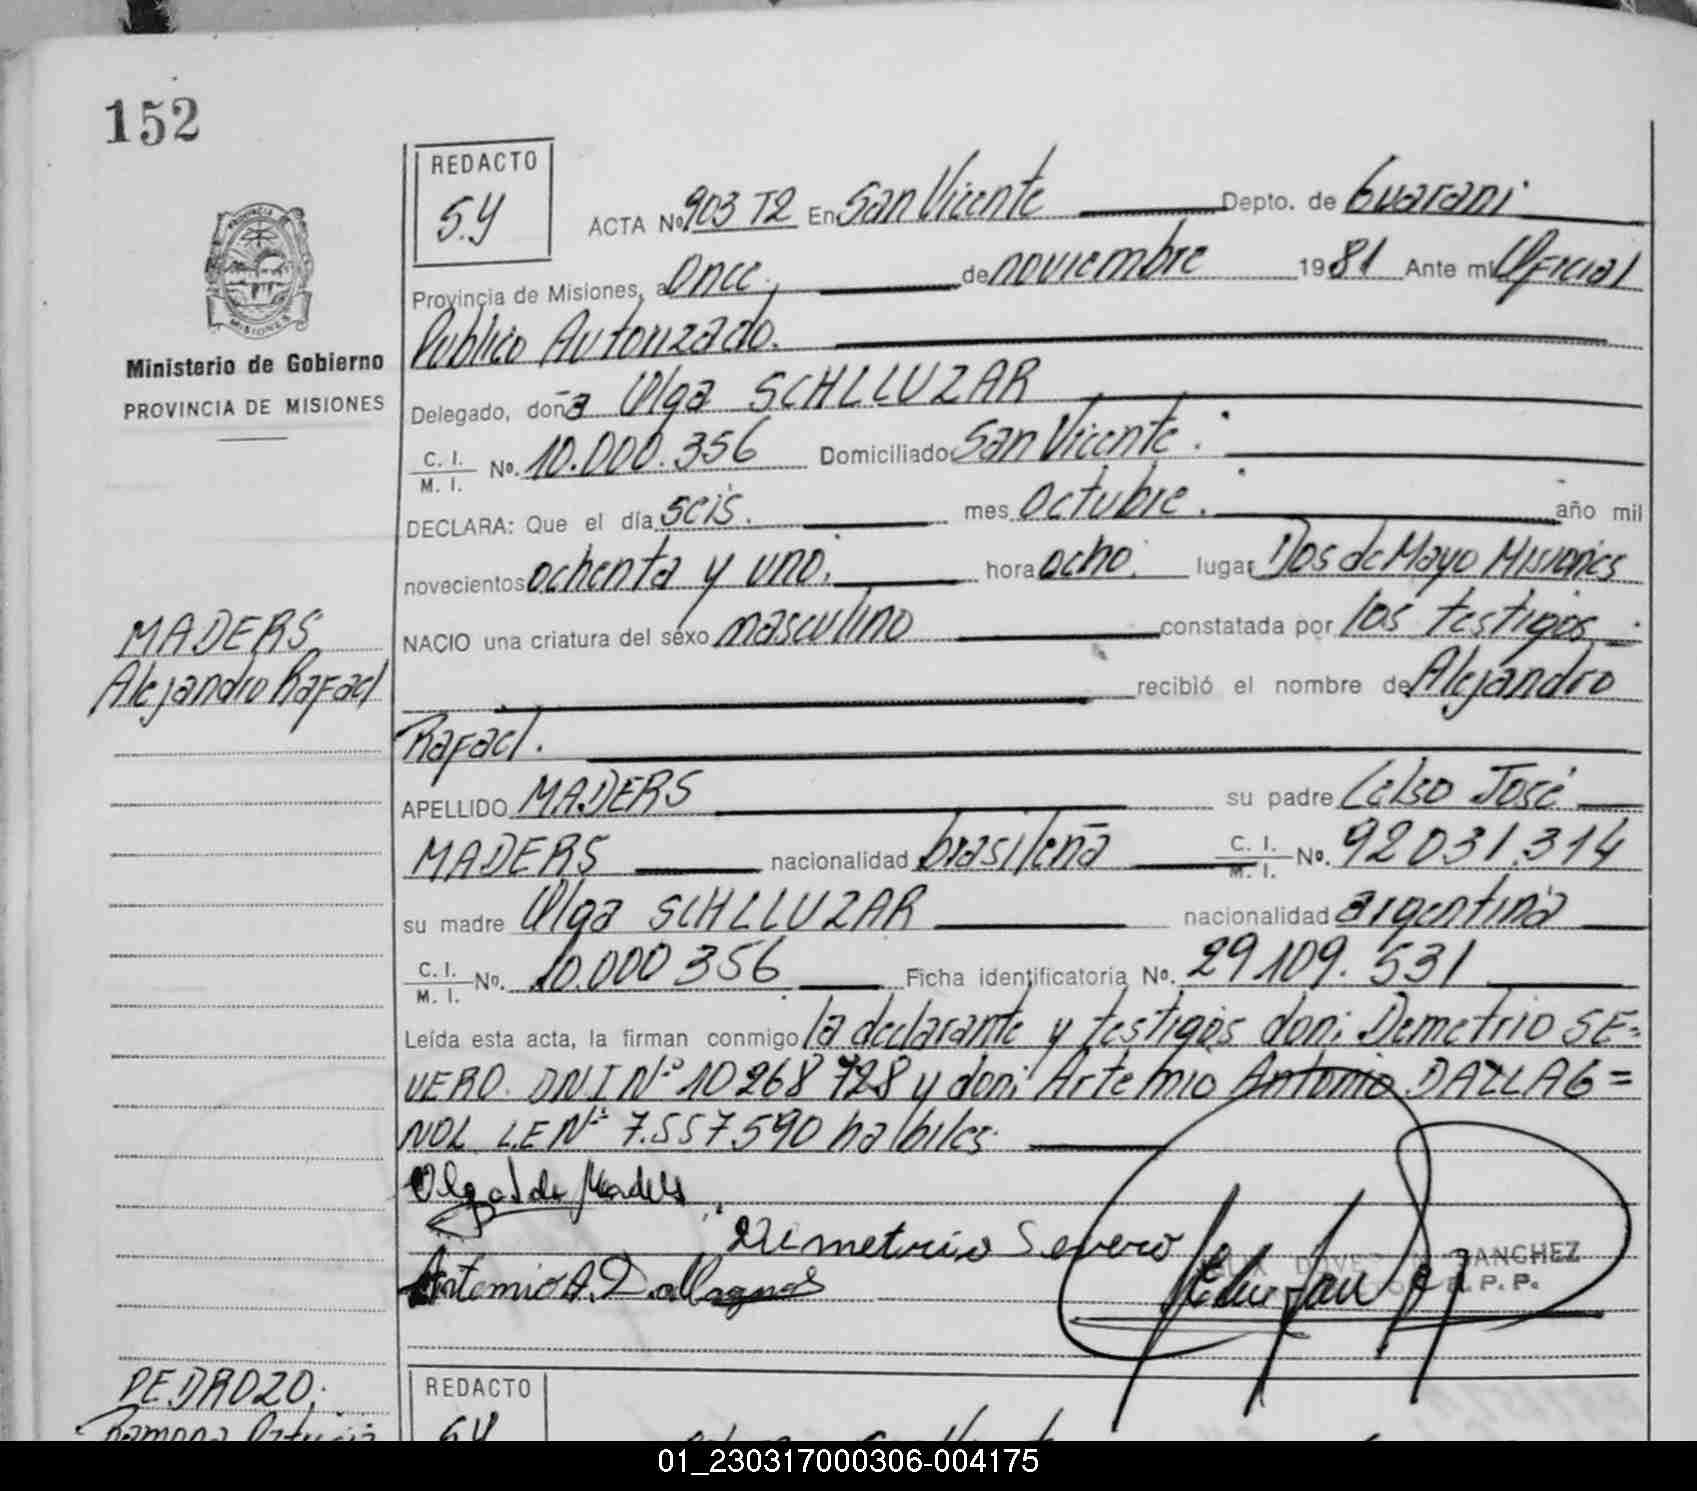 152
REDACTO
S.Y
ACTA No. 903 T2 En San Vicente Depto. de Guarani
Provincia de Misiones, a Once. de noviembre 1981 Ante mi Oficial
Publico Autorizado.
PROVINCIA
MISIONES
Ministerio de Gobierno
PROVINCIA DE MISIONES
Delegado, doña Olga SCHLLUZAR
C. I.
M. I. No. 10.000.356 Domiciliado San Vicente.
DECLARA: Que el día seis. mes octubre. año mil
novecientos ochenta y uno. hora ocho. lugar Dos de Mayo Misiones
NACIO una criatura del sexo masculino constatada por los testigos
recibió el nombre de Alejandro
Rafael.
MADERS
Alejandro Rafael
APELLIDO MADERS su padre Celso José
MADERS nacionalidad brasileña C. I.
M. I. No. 92031.314
su madre Olga SCHLLUZAR nacionalidad argentina
C. I.
M. I. No. 10.000356 Ficha identificatoria No. 29109.531
Leída esta acta, la firman conmigo la declarante y testigos don: Demetrio SE=
VERO. DNI Nº 10268728 y don: Artemio Antonio DALLAG=
NOL L.E Nº 7.557590 habiles.
Olga S de Maders
Demetrio Severo
Artemio A. Dallagnol
SANCHEZ
R. P. P.
PEDROZO.
Ramona
REDACTO
SY
01_230317000306-004175